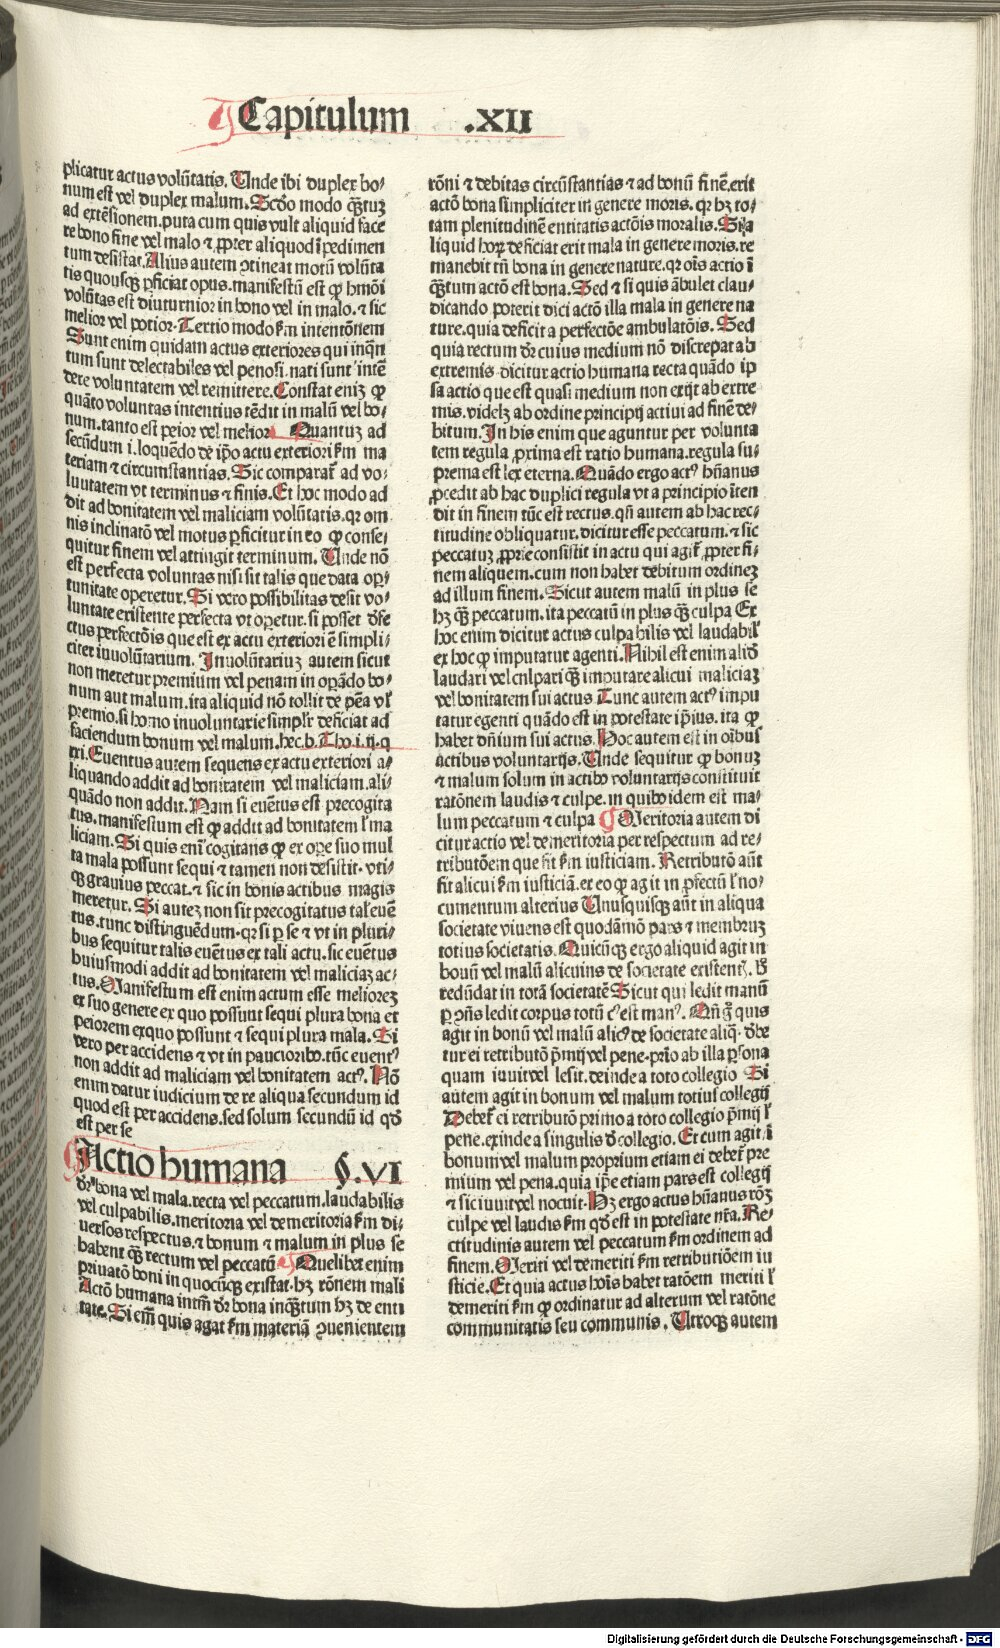 Capitulum .XII
plicatur actus volūtatis. Unde ibi duplex bo-
num est vel duplex malum. Scđo modo q̃ꝫtuꝫ
ad extẽsionem. puta cum quis vult aliquid face
re bono fine vel malo ⁊ ꝓpter aliquod ĩpedimen
tum desistat. Alius autem ꝯtineat motũ volũta
tis quousqꝫ ꝑficiat opus. manifestũ est ꝙ hmõi
volũtas est diuturnior in bono vel in malo. ⁊ sic
melior vel potior. Tertio modo ẜm intentõnem
Sunt enim quidam actus exteriores qui inq̃n
tum sunt delectabiles vel penosi. nati sunt intẽ
dere voluntatem vel remittere. Constat eniꝫ ꝙ
quãto voluntas intentius tẽdit in malũ vel bo-
num. tanto est peior vel melior Quantuꝫ ad
secũdum i. loquẽdo de ip̃o actu exteriori ẜm ma
teriam ⁊ circumstantias. Sic comparat᷑ ad vo-
luutatem vt terminus ⁊ finis. Et hoc modo ad
dit ad bonitatem vel maliciam volũtatis. qꝛ om
nis inclinatõ vel motus ꝑficitur in eo ꝙ conse-
quitur finem vel attingit terminum. Unde nõ
est perfecta voluntas nisi sit talis que data op-
tunitate operetur. Si vero possibilitas desit vo-
luntate existente perfecta vt oꝑetur. si posset đfe
ctus perfectõis que est ex actu exteriori ẽ simpli-
citer iuvolũtarium. Inuolũtariuꝫ autem sicut
non meretur premium vel penam in oꝑãdo bo-
num aut malum. ita aliquid nõ tollit de pẽa vł
premio. si homo inuoluntarie simplr̃ deficiat ad
faciendum bonum vel malum. hec. b. Tho. i. ij. q
xxi. Euentus autem sequens ex actu exteriori a-
liquando addit ad bonitatem vel maliciam. ali-
quãdo non addit. Nam si euẽtus est precogita
tus. manifestum est ꝙ addit ad bonitatem ł ma
liciam. Si quis eni͂ cogitans ꝙ ex oꝑe suo mul
ta mala possunt sequi ⁊ tamen non desistit. vti-
qꝫ grauius peccat. ⁊ sic in bonis actibus magis
meretur. Si auteꝫ non sit precogitatus tał euẽ
tus. tunc distinguẽdum. qꝛ si ꝑ se ⁊ vt in pluri-
bus sequitur talis euẽtus ex tali actu. sic euẽtus
huiusmodi addit ad bonitatem vel maliciaꝫ ac-
tus. Manifestum est enim actum esse melioreꝫ
ex suo genere ex quo possunt sequi plura bona et
peiorem ex quo possunt ⁊ sequi plura mala. Si
vero per accidens ⁊ vt in pauciorib᷒. tũc euent᷒
non addit ad maliciam vel bonitatem act᷒. Nõ
enim datur iudicium de re aliqua secundum id
quod est per accidens. sed solum secundũ id qđ
est per se
Actio humana §. VI
dr̃ bona vel mala. recta vel peccatum. laudabilis
vel culpabilis. meritoria vel demeritoria ẜm di-
uersos respectus. ⁊ bonum ⁊ malum in plus se
habent q̃ꝫ rectum vel peccatũ Quelibet enim
priuatõ boni in quocũqꝫ existat. hꝫ rõnem mali
Actõ humana intm̃ dr̃ bona inq̃ꝫtum hꝫ de enti
tate. Si em̃ quis agat ẜm materiã ꝯuenientem
rõni ⁊ debitas circũstantias ⁊ ad bonũ finẽ. erit
actõ bona simpliciter in genere moris. qꝛ hꝫ to-
tam plenitudinẽ entitatis actõis moralis. Si a
liquid hoꝝ deficiat erit mala in genere moris. re
manebit tñ bona in genere nature. qꝛ oĩs actio ĩ
q̃ꝫtum actõ est bona. Sed ⁊ si quis ãbulet clau-
dicando poterit dici actõ illa mala in genere na
ture. quia deficit a perfectõe ambulatõis. Sed
quia rectum dr̃ cuius medium nõ discrepat ab
extremis. dicitur actio humana recta quãdo ip
sa actio que est quasi medium non exijt ab extre
mis. videlꝫ ab ordine principij actiui ad finẽ de-
bitum. In his enim que aguntur per volunta
tem regula ꝓxima est ratio humana. regula su-
prema est lex eterna. Quãdo ergo act᷒ hũanus
ꝓcedit ab hac duplici regula vt a principio ĩten
dit in finem tũc est rectus. qñ autem ab hac rec-
titudine obliquatur. dicitur esse peccatum. ⁊ sic
peccatuꝫ ꝓprie consistit in actu qui agit᷑ ꝓpter fi-
nem aliquem. cum non habet debitum ordineꝫ
ad illum finem. Sicut autem malũ in plus se
hꝫ q̃ꝫ peccatum. ita peccatũ in plus q̃ꝫ culpa Ex
hoc enim dicitur actus culpabilis vel laudabił
ex hoc ꝙ imputatur agenti. Nihil est enim aliđ
laudari vel culpari q̃ꝫ imputare alicui maliciaꝫ
vel bonitatem sui actus Tunc autem act᷒ impu
tatur egenti quãdo est in potestate ip̃ius. ita ꝙ
habet dñium sui actus. Hoc autem est in oĩbus
actibus voluntarijs. Unde sequitur ꝙ bonuꝫ
⁊ malum solum in actib᷒ voluntarijs constituit
ratõnem laudis ⁊ culpe. in quib᷒ idem est ma-
lum peccatum ⁊ culpa Meritoria autem di
citur actio vel demeritoria per respectum ad re-
tributõem que fit ẜm iusticiam. Retributõ aũt
fit alicui ẜm iusticiã. ex eo ꝙ agit in ꝓfectũ ł no-
cumentum alterius Unusquisqꝫ aũt in aliqua
societate viuens est quodãmõ pars ⁊ membruꝫ
totius societatis. Quicũqꝫ ergo aliquid agit in
bouũ vel malũ alicuius de societate existent᷒. h̃
redũdat in totã societatẽ Sicut qui ledit manũ
ꝑ ꝯñs ledit corpus totũ c᷒ est man᷒. Qñ g̃ quis
agit in bonũ vel malũ alic᷒ de societate aliq̃. đbe
tur ei retributõ p̃mij vel pene. prĩo ab illa ꝑsona
quam iuuit vel lesit. deinde a toto collegio Si
autem agit in bonum vel malum totius collegij
Debet᷑ ei retributõ primo a toto collegio p̃mij ł
pene. exinde a singulis đ collegio. Et cum agit ĩ
bonum vel malum proprium etiam ei debet᷑ pre
mium vel pena. quia ip̃e etiam pars est collegij
⁊ sic iuuit vel nocuit. Hꝫ ergo actus hũanus rõꝫ
culpe vel laudis ẜm qđ est in potestate nr̃a. Re-
ctitudinis autem vel peccatum ẜm ordinem ad
finem. Meriti vel demeriti ẜm retributiõem iu
sticie. Et quia actus hoĩs habet ratõem meriti ł
demeriti ẜm ꝙ ordinatur ad alterum vel ratõne
communitatis seu communis. Utroqꝫ autem
Digitalisierung gefördert durch die Deutsche Forschungsgemeinschaft - DFG